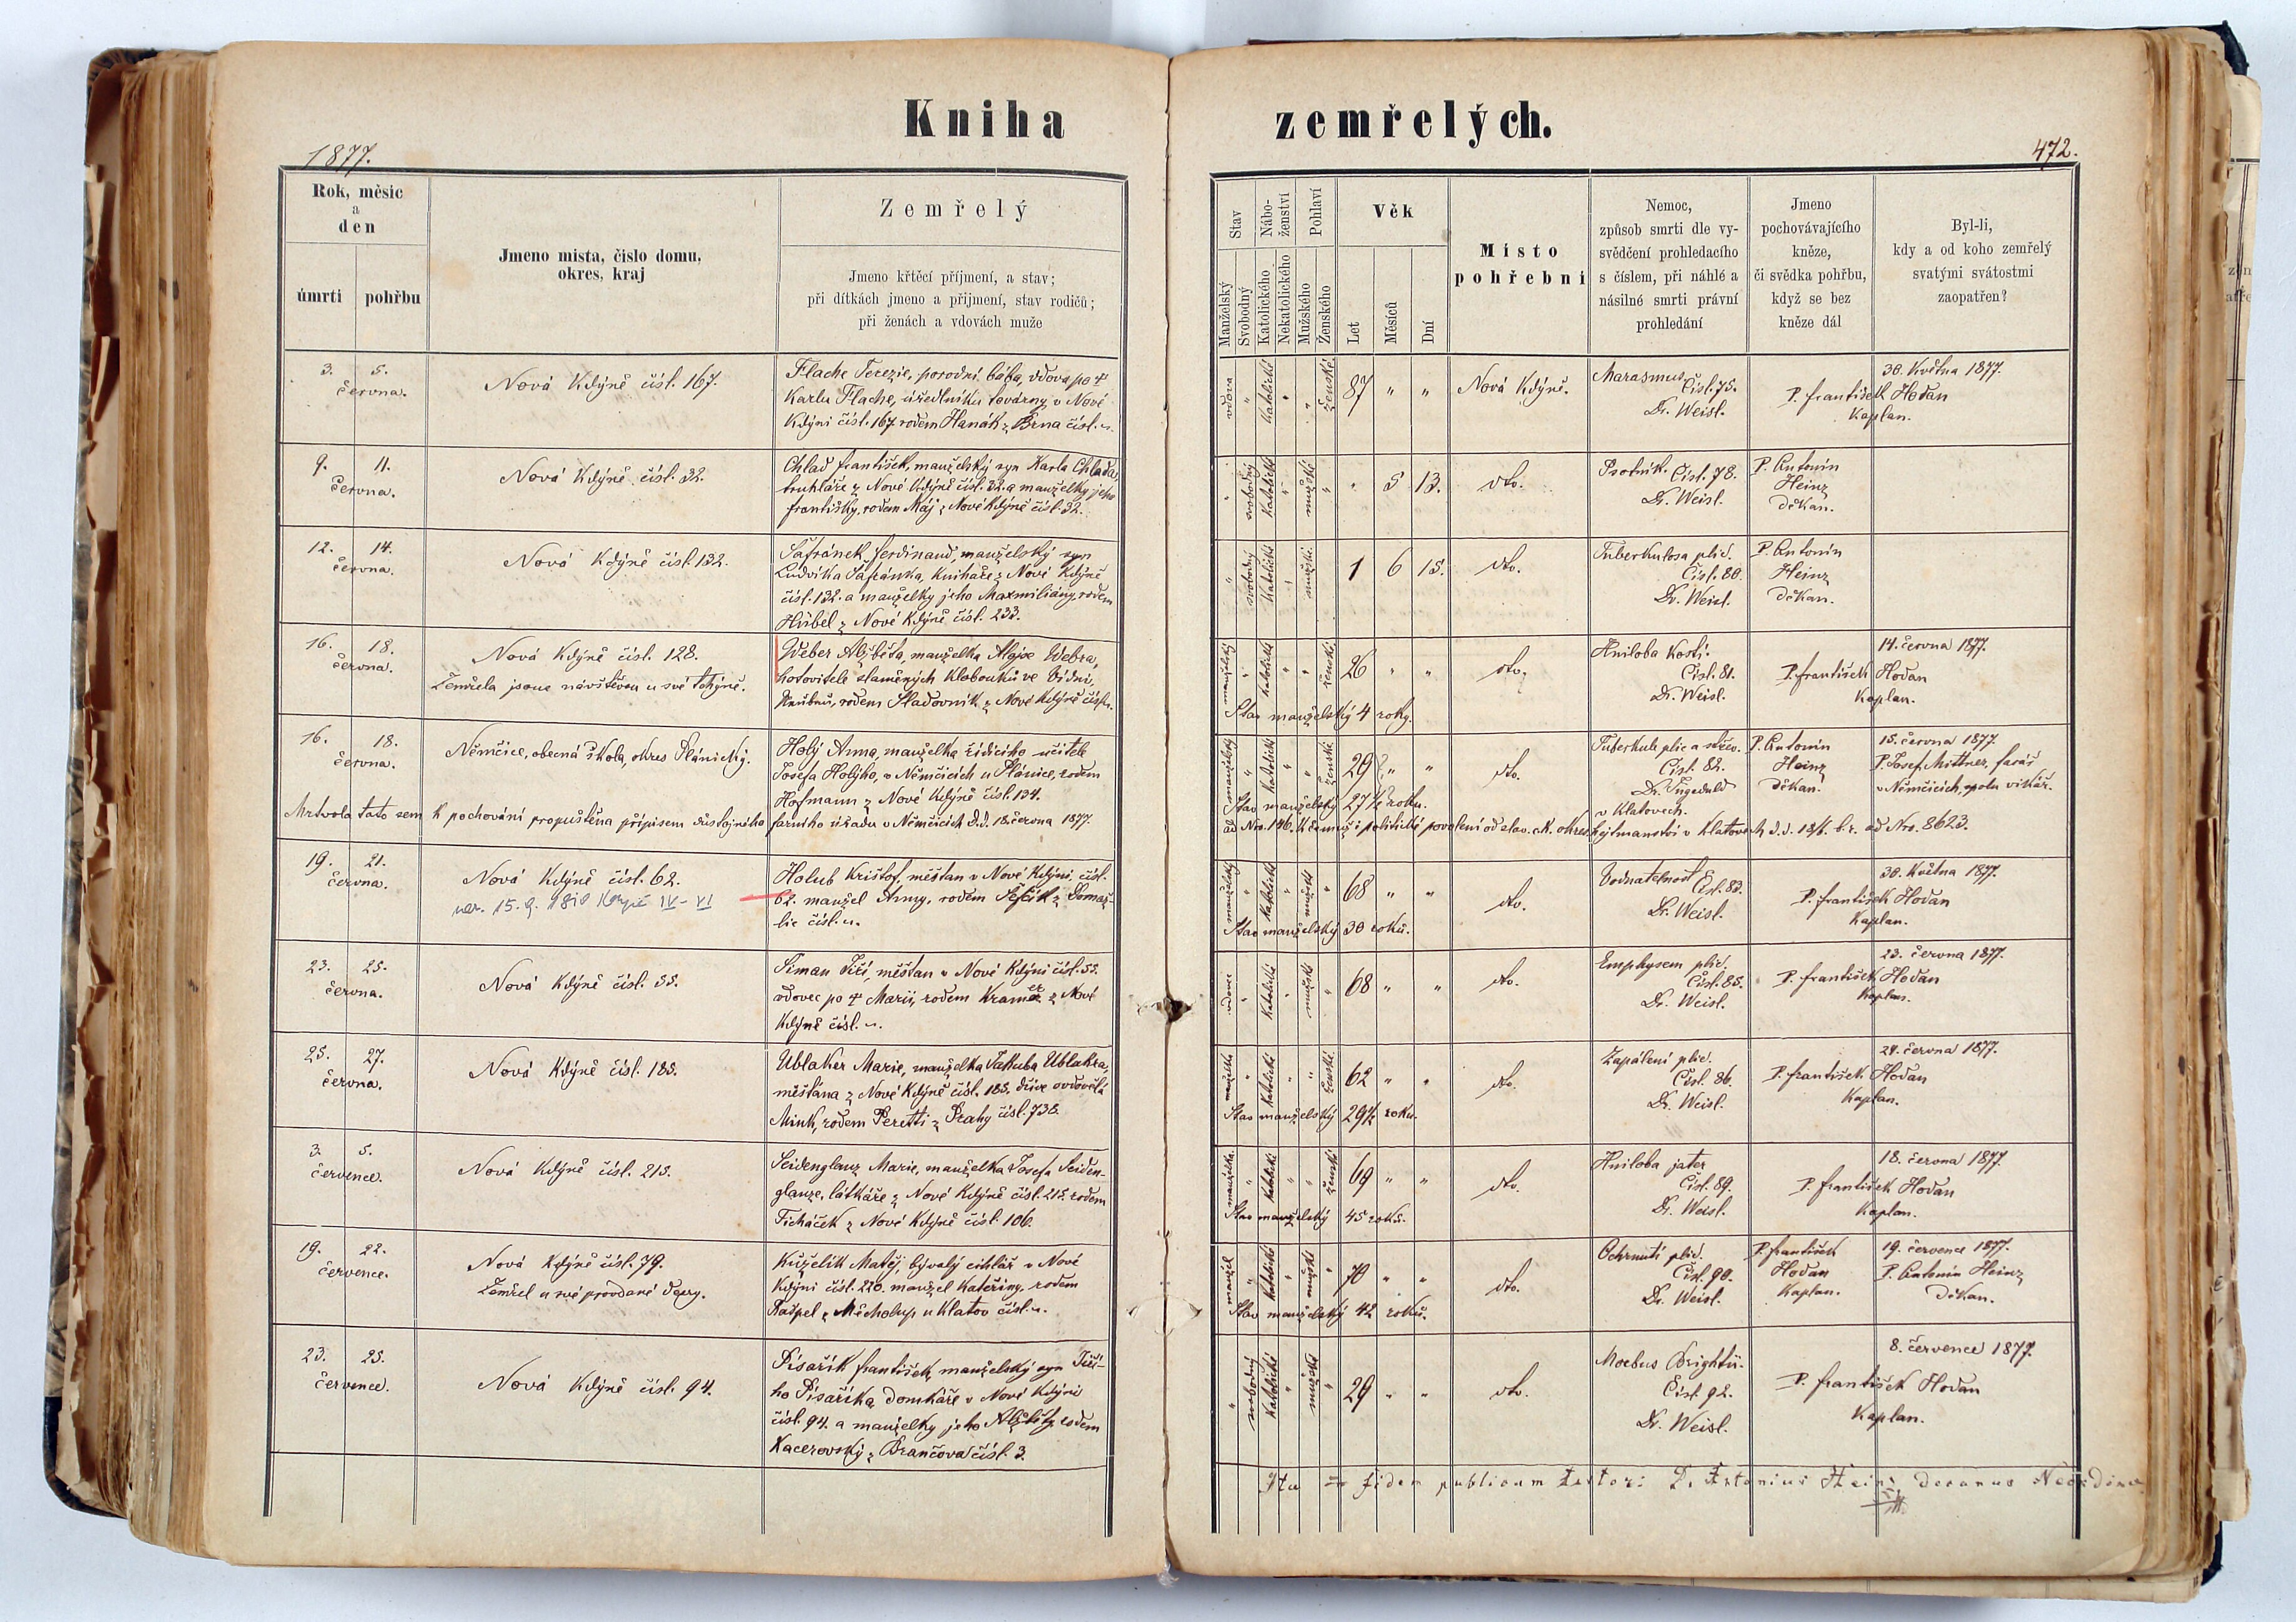 Kniha zemřelých.
1877.
472.
Rok, měsíc
a
den
úmrtí
pohřbu
Jmeno místa, číslo domu,
okres, kraj
Zemřelý
Jmeno křtěcí příjmení, a stav;
při dítkách jmeno a příjmení, stav rodičů;
při ženách a vdovách muže
Stav
Nábo-
ženství
Pohlaví
Manželský
Svobodný
Katolického
Nekatolického
Mužského
Ženského
Věk
Let
Měsíců
Dní
Místo
pohřební
Nemoc,
způsob smrti dle vy-
svědčení prohledacího
s číslem, při náhlé a
násilné smrti právní
prohledání
Jmeno
pochovávajícího
kněze,
či svědka pohřbu,
když se bez
kněze dál
Byl-li,
kdy a od koho zemřelý
svatými svátostmi
zaopatřen?
3. 5.
června.
Nová Kdýně čísl. 167.
Flache Terezie, porodní bába, vdova po †
Karlu Flache, úředlníku továrny v Nové
Kdýni čísl. 167 rodem Hanák z Brna čísl. „.
vdova " Katolické " " ženské.
87 " "
Nová Kdýně.
Marasmus Čísl. 75.
Dr. Weisl.
P. František Hodan
Kaplan.
30. Května 1877.
9. 11.
června.
Nová Kdýně čísl. 32.
Chlad František, manželský syn Karla Chlada,
truhláře z Nové Kdýně čísl. 32. a manželky jeho
Františky, rodem Máj z Nové Kdýně čísl. 32.
" svobodný Katolické " mužské "
" 5 13.
dto.
Psotník. Čísl. 78.
Dr. Weisl.
P. Antonín
Heinz
Děkan.
12. 14.
června.
Nová Kdýně čísl. 132.
Šafránek Ferdinand, manželský syn
Ludvíka Šafránka, Knihaře z Nové Kdýně
čísl. 132. a manželky jeho Maxmiliány, rodem
Hribel z Nové Kdýně čísl. 233.
" svobodný Katolické " mužské.
1 6 15.
dto.
Tuberkulosa plic.
Čísl. 80.
Dr. Weisl.
P. Antonín
Heinz
Děkan.
16. 18.
června.
Nová Kdýně čísl. 128.
Zemřela jsouc návštěvou u své tchýně.
Weber Alžběta, manželka Aloise Webra,
hotovitele slaměných Klobouků ve Vídni,
rodem Sladovník z Nové Kdýně čísl.
manželský " katolické " " ženské.
26 " "
dto.
Stav manželský 4 roky.
Hniloba Kostí.
Čísl. 81.
Dr. Weisl.
P. František Hodan
Kaplan.
14. června 1877.
16. 18.
června.
Němčice, obecná škola, okres Plánický.
Holý Anna, manželka řídícího učitele
Josefa Holýho, v Němčicích u Plánice, rodem
Hofmann z Nové Kdýně čísl. 134.
manželský " Katolické " " ženské
29 " "
dto.
Stav manželský 7½ roku.
Tuberkule plic a střev.
Čísl. 82.
Dr.
v Klatovech.
P. Antonín
Heinz
děkan.
15. června 1877.
P. Josef Mittner, farář
v Němčicích, spolu vikář.
Mrtvola tato sem k pochování propuštěna přípisem důstojného farního úřadu v Němčicích d.d. 18. června 1877.
ad Nro. 146. K čemuž i politické povolení od slav. ck. okres. hejtmanství v Klatovech d.d. 18/6. b.r. ad Nro. 8623.
19. 21.
června.
Nová Kdýně čísl. 62.
nar. 15. 9. 1810
Holub Krištof, měšťan v Nové Kdýni, čísl.
62. manžel Anny, rodem Šefčík z Domaž-
lic čísl. „.
manželský " Katolické " mužské "
68 " "
dto.
Stav manželský 30 roků.
Vodnatelnost Čísl. 83.
Dr. Weisl.
P. František Hodan
Kaplan.
30. Května 1877.
23. 25.
června.
Nová Kdýně čísl. 55.
Siman Jiří, měšťan v Nové Kdýni čísl. 55.
vdovec po † Marii, rodem Kramer z Nové
Kdýně čísl. „.
vdovec " Katolické " mužské "
68 " "
dto.
Emphysem plic.
Čísl. 85.
Dr. Weisl.
P. František Hodan
Kaplan.
23. června 1877.
25. 27.
června.
Nová Kdýně čísl. 185.
Ublaker Marie, manželka Jakuba Ublakra,
měšťana z Nové Kdýně čísl. 185. dříve ovdovělá
Mink, rodem Peretti z Prahy čísl. 736.
manželka " Katolické " " ženské.
62 " "
dto.
Stav manželský 29½ roku.
Zapálení plic.
Čísl. 86.
Dr. Weisl.
P. František Hodan
Kaplan.
24. června 1877.
3. 5.
července.
Nová Kdýně čísl. 215.
Seidenglanz Marie, manželka Josefa Seiden-
glanze, látkáře z Nové Kdýně čísl. 215. rodem
Ticháček z Nové Kdýně čísl. 106.
manželka. " Katolické " " ženské
69 " "
dto.
Stav manželský 45 roků.
Hniloba jater
Čísl. 89.
Dr. Weisl.
P. František Hodan
Kaplan.
18. června 1877.
19. 22.
července.
Nová Kdýně čísl. 79.
Zemřel u své provdané dcery.
Kuželík Matěj, bývalý cihlář v Nové
Kdýni čísl. 220. manžel Kateřiny, rodem
Kašpel z Měcholup u Klatov čísl. „.
manžel " Katolické " mužské "
70 " "
dto.
Stav manželský 42 roků.
Ochrnutí plic.
Čísl. 90.
Dr. Weisl.
P. František
Hodan
Kaplan.
19. července 1877.
P. Antonín Heinz
Děkan.
23. 25.
července.
Nová Kdýně čísl. 94.
Písařík František, manželský syn Jiří-
ho Písaříka, domkáře v Nové Kdýni
čísl. 94. a manželky jeho Alžběty, rodem
Kacerovský z Brančova čísl. 3.
" svobodný Katolické " mužské "
29 " "
dto.
Morbus Brightii.
Čísl. 92.
Dr. Weisl.
P. František Hodan
Kaplan.
8. července 1877.
Ita in fidem publicam testor: P. Antonius Heinz decanus